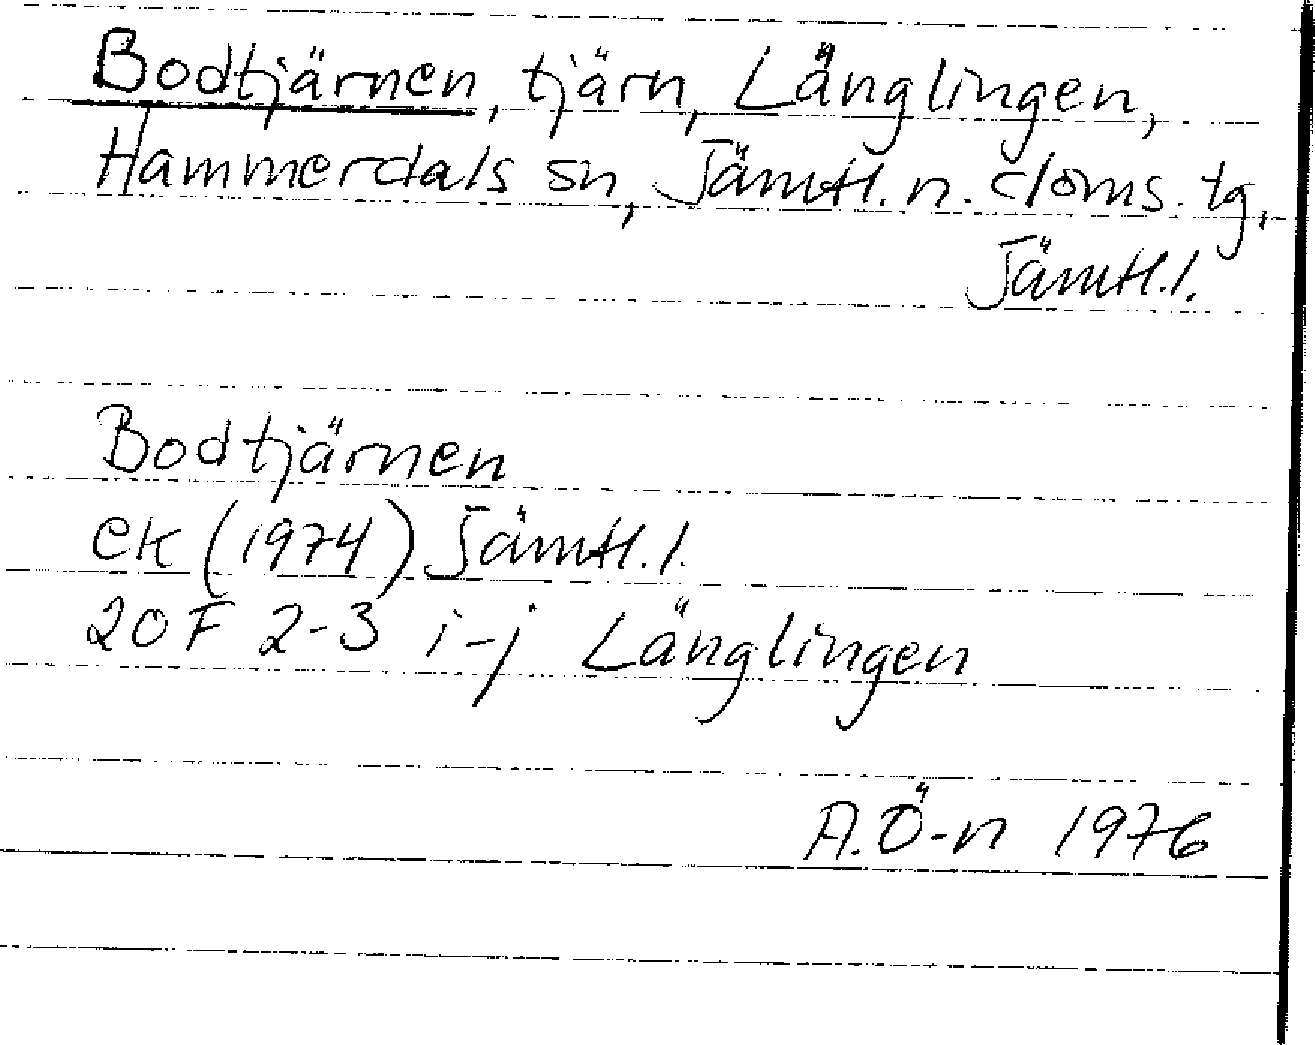 Bodtjärnen, tjärn, Länglingen,
Hammerdals sn, Jämtl. n. doms. tg,
Jämtl. l.
Bodtjärnen
ek (1974) Jämtl. l.
20 F 2-3 i-j Länglingen
A. Ö-n 1976